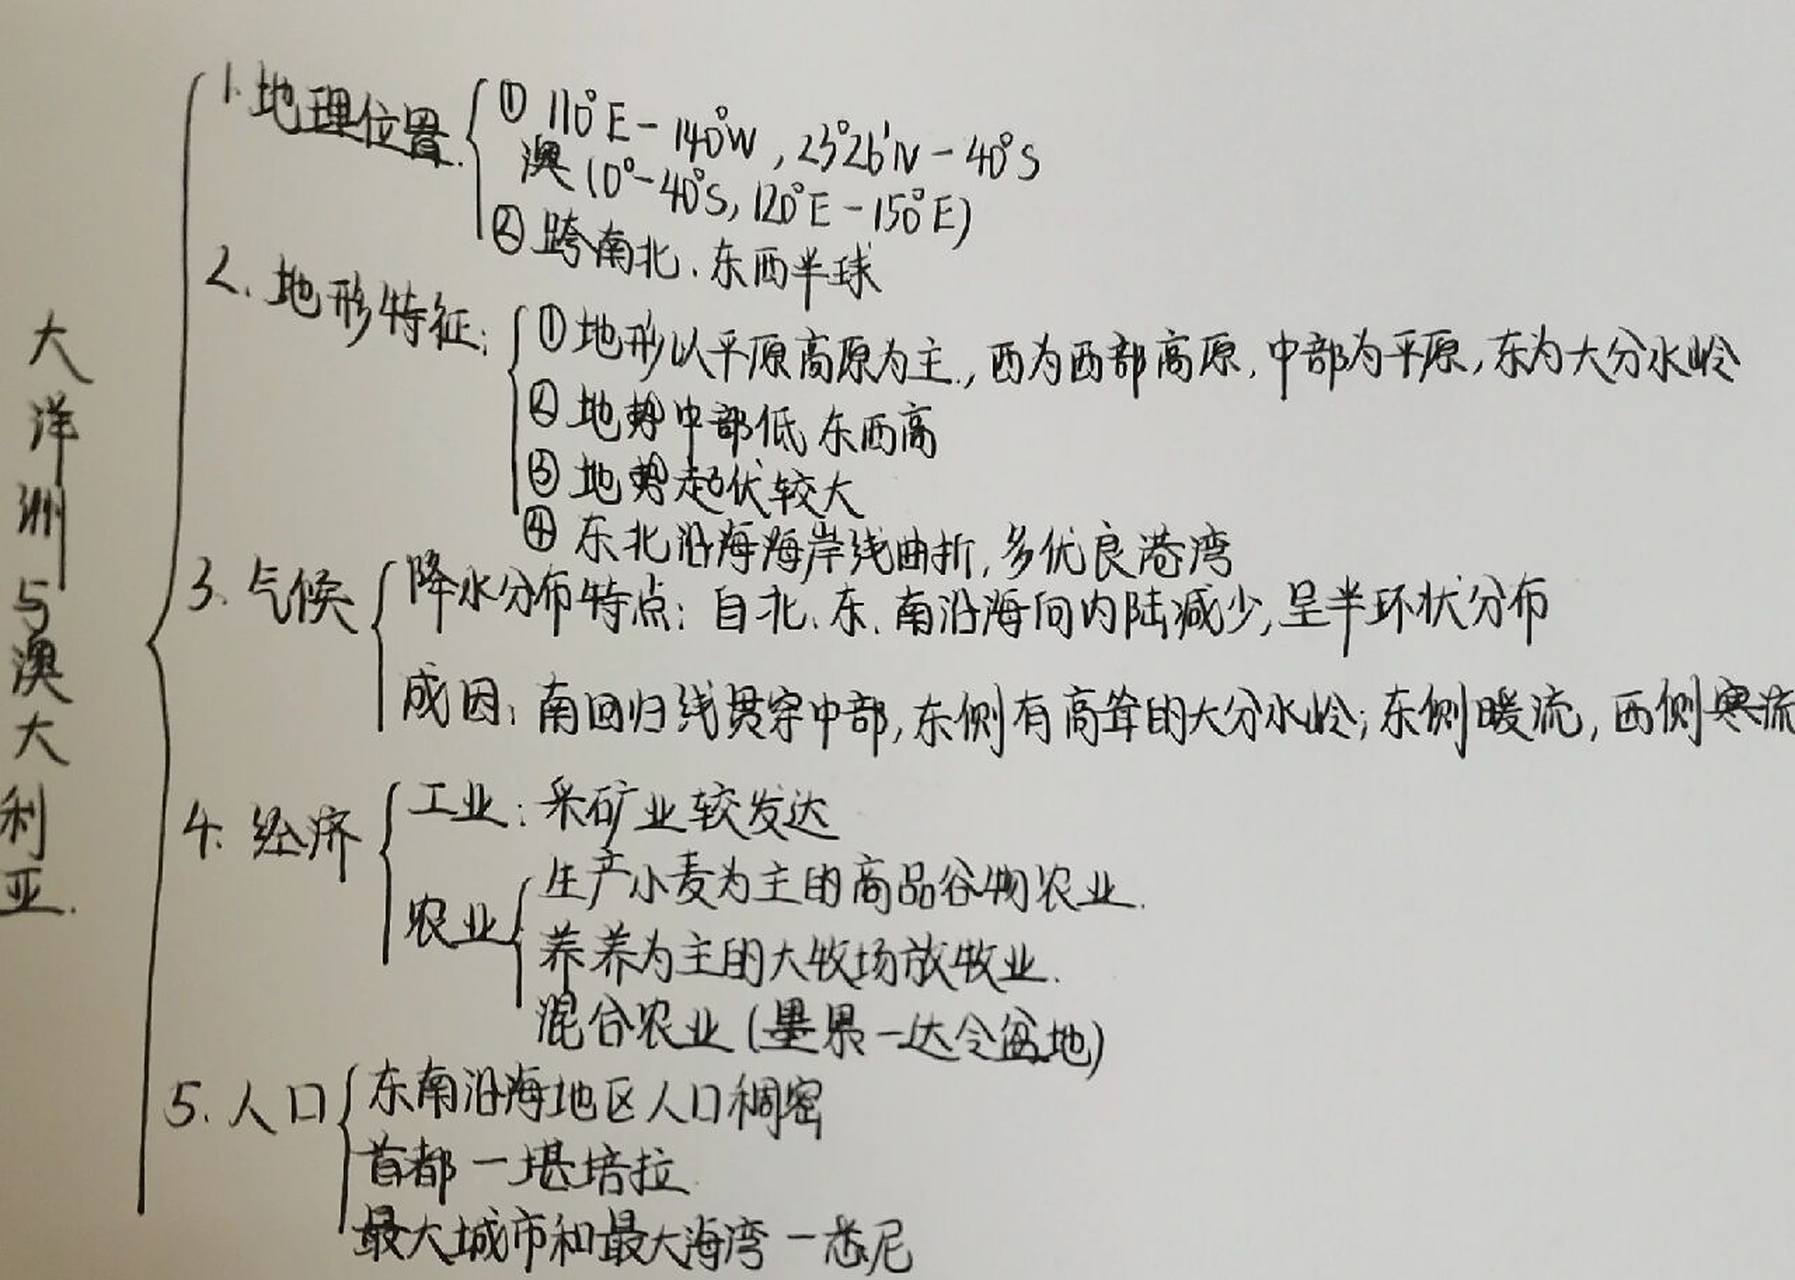 大洋洲与澳大利亚.
1.地理位置.
① 110°E-140°W,23°26′N-40°S
澳(10°-40°S,120°E-150°E)
② 跨南北、东西半球
2.地形特征:
① 地形以平原高原为主.,西为西部高原,中部为平原,东为大分水岭
② 地势中部低 东西高
③ 地势起伏较大
④ 东北沿海海岸线曲折,多优良港湾
3.气候
降水分布特点:自北、东、南沿海向内陆减少,呈半环状分布
成因:南回归线贯穿中部,东侧有高耸的大分水岭;东侧暖流,西侧寒流
4.经济
工业:采矿业较发达
农业
生产小麦为主的商品谷物农业.
养养为主的大牧场放牧业.
混合农业(墨累-达令盆地)
5.人口
东南沿海地区人口稠密
首都-堪培拉
最大城市和最大海湾-悉尼